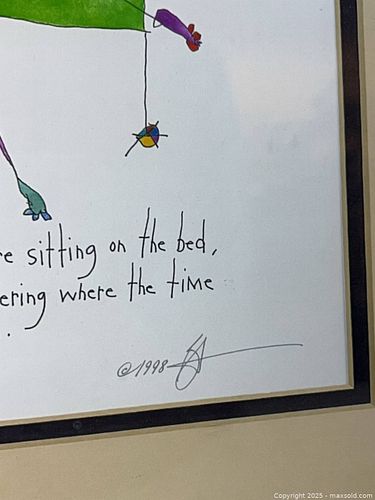 e sitting on the bed,
ering where the time
.
©1998
Copyright 2025 - maxsold.com